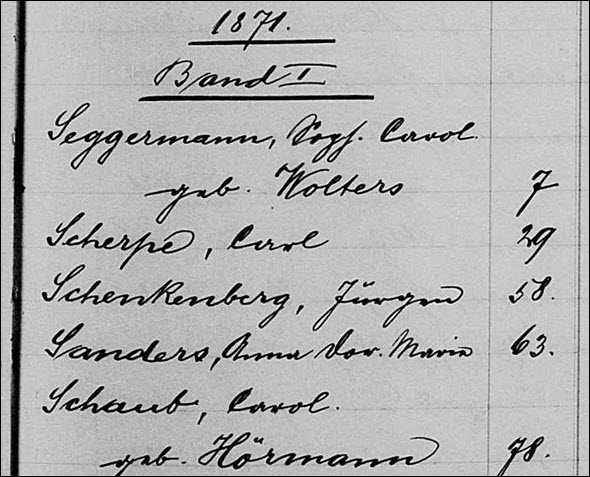 1871.
Band I
Seggermann, Soph. Carol.
geb. Wolters 7
Scherpe, Carl 29
Schenkenberg, Jürgen 58.
Sanders, Anna Dor. Marie 63.
Schaub, Carol.
geb. Hörmann 78.